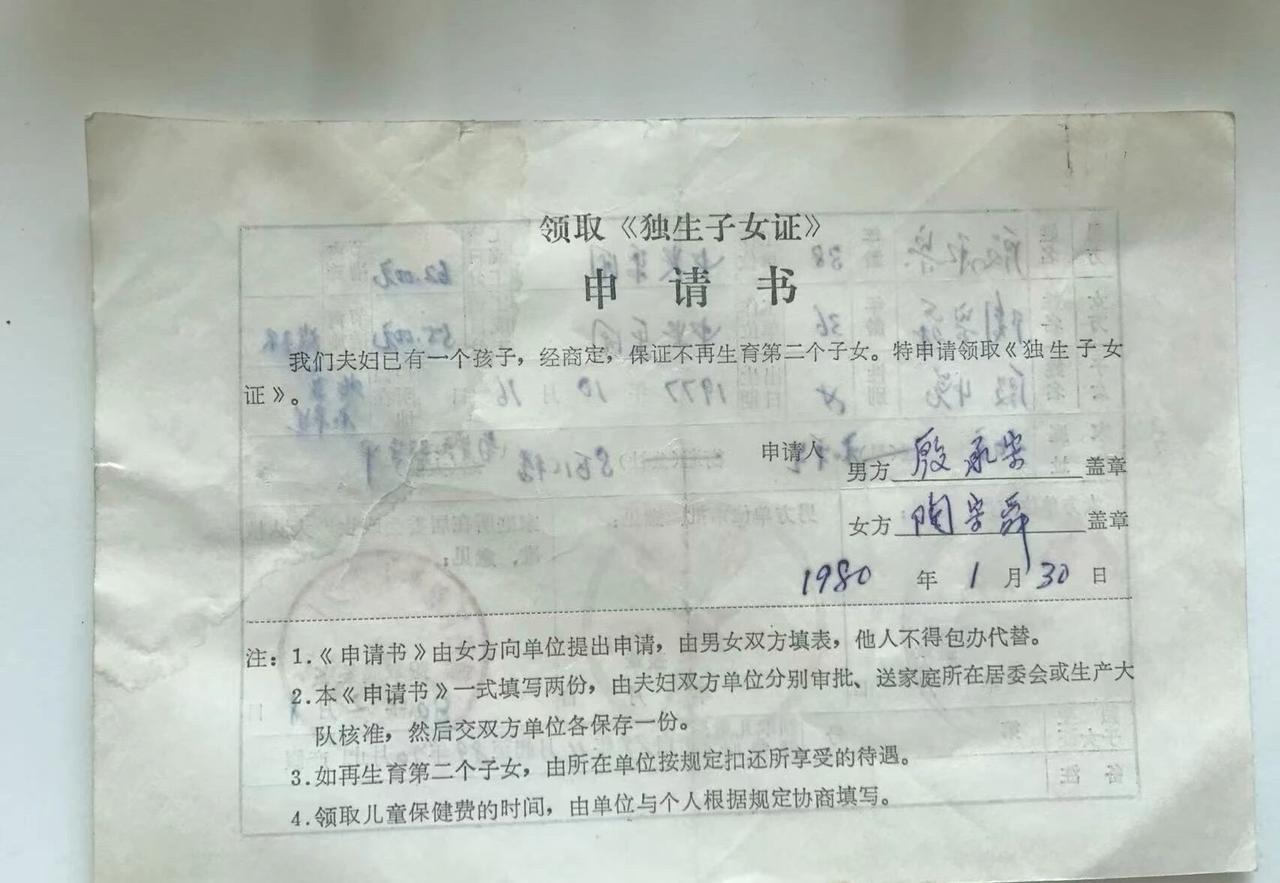 领取《独生子女证》
申请书
我们夫妇已有一个孩子，经商定，保证不再生育第二个子女。特申请领取《独生子女
证》。
申请人
男方 殷承宗 盖章
女方 陶容舜 盖章
1980 年 1 月 30 日
注：1.《申请书》由女方向单位提出申请，由男女双方填表，他人不得包办代替。
2.本《申请书》一式填写两份，由夫妇双方单位分别审批、送家庭所在居委会或生产大
队核准，然后交双方单位各保存一份。
3.如再生育第二个子女，由所在单位按规定扣还所享受的待遇。
4.领取儿童保健费的时间，由单位与个人根据规定协商填写。